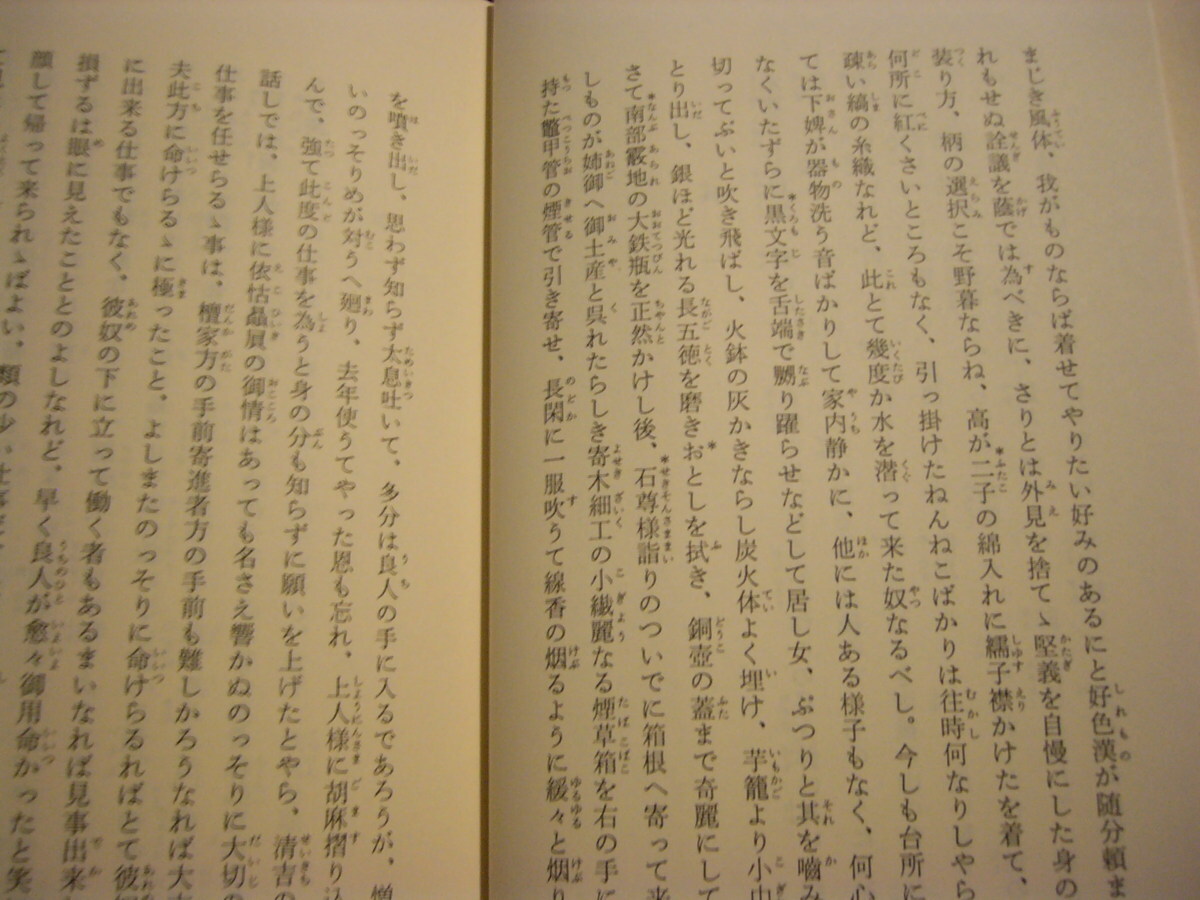 まじき風体、我がものならば着せてやりたい好みのあるにと好色漢が随分頼ま
れもせぬ詮議を蔭では為べきに、さりとは外見を捨てゝ堅義を自慢にした身の
装り方、柄の選択こそ野暮ならね、高が二子の綿入れに繻子襟かけたを着て、
何所に紅くさいところもなく、引っ掛けたねんねこばかりは往時何なりしやら
疎い縞の糸織なれど、此とて幾度か水を潜って来た奴なるべし。今しも台所に
ては下婢が器物洗う音ばかりして家内静かに、他には人ある様子もなく、何心
なくいたずらに黒文字を舌端で嬲り躍らせなどして居し女、ぷつりと其を噛み
切ってぷいと吹き飛ばし、火鉢の灰かきならし炭火体よく埋け、芋籠より小巾
とり出し、銀ほど光れる長五徳を磨きおとしを拭き、銅壺の蓋まで奇麗にして
さて南部霰地の大鉄瓶を正然かけし後、石尊様詣りのついでに箱根へ寄って来
しものが姉御へ御土産と呉れたらしき寄木細工の小繊麗なる煙草箱を右の手に
持た鼈甲管の煙管で引き寄せ、長閑に一服吹うて線香の烟るように緩々と烟り
を噴き出し、思わず知らず太息吐いて、多分は良人の手に入るであろうが、憎
いのっそりめが対うへ廻り、去年使うてやった恩も忘れ、上人様に胡麻摺り込
んで、強て此度の仕事を為うと身の分も知らずに願いを上げたとやら、清吉の
話しでは、上人様に依怙贔屓の御情はあっても名さえ響かぬのっそりに大切の
仕事を任せらるゝ事は、檀家方の手前寄進者方の手前も難しかろうなれば大丈
夫此方に命けらるゝに極ったこと、よしまたのっそりに命けらるればとて彼奴
に出来る仕事でもなく、彼奴の下に立って働く者もあるまいなれば見事出来
損ずるは眼に見えたこととのよしなれど、早く良人が愈々御用命かったと笑
顔して帰って来られゝばよい、類の少い仕事